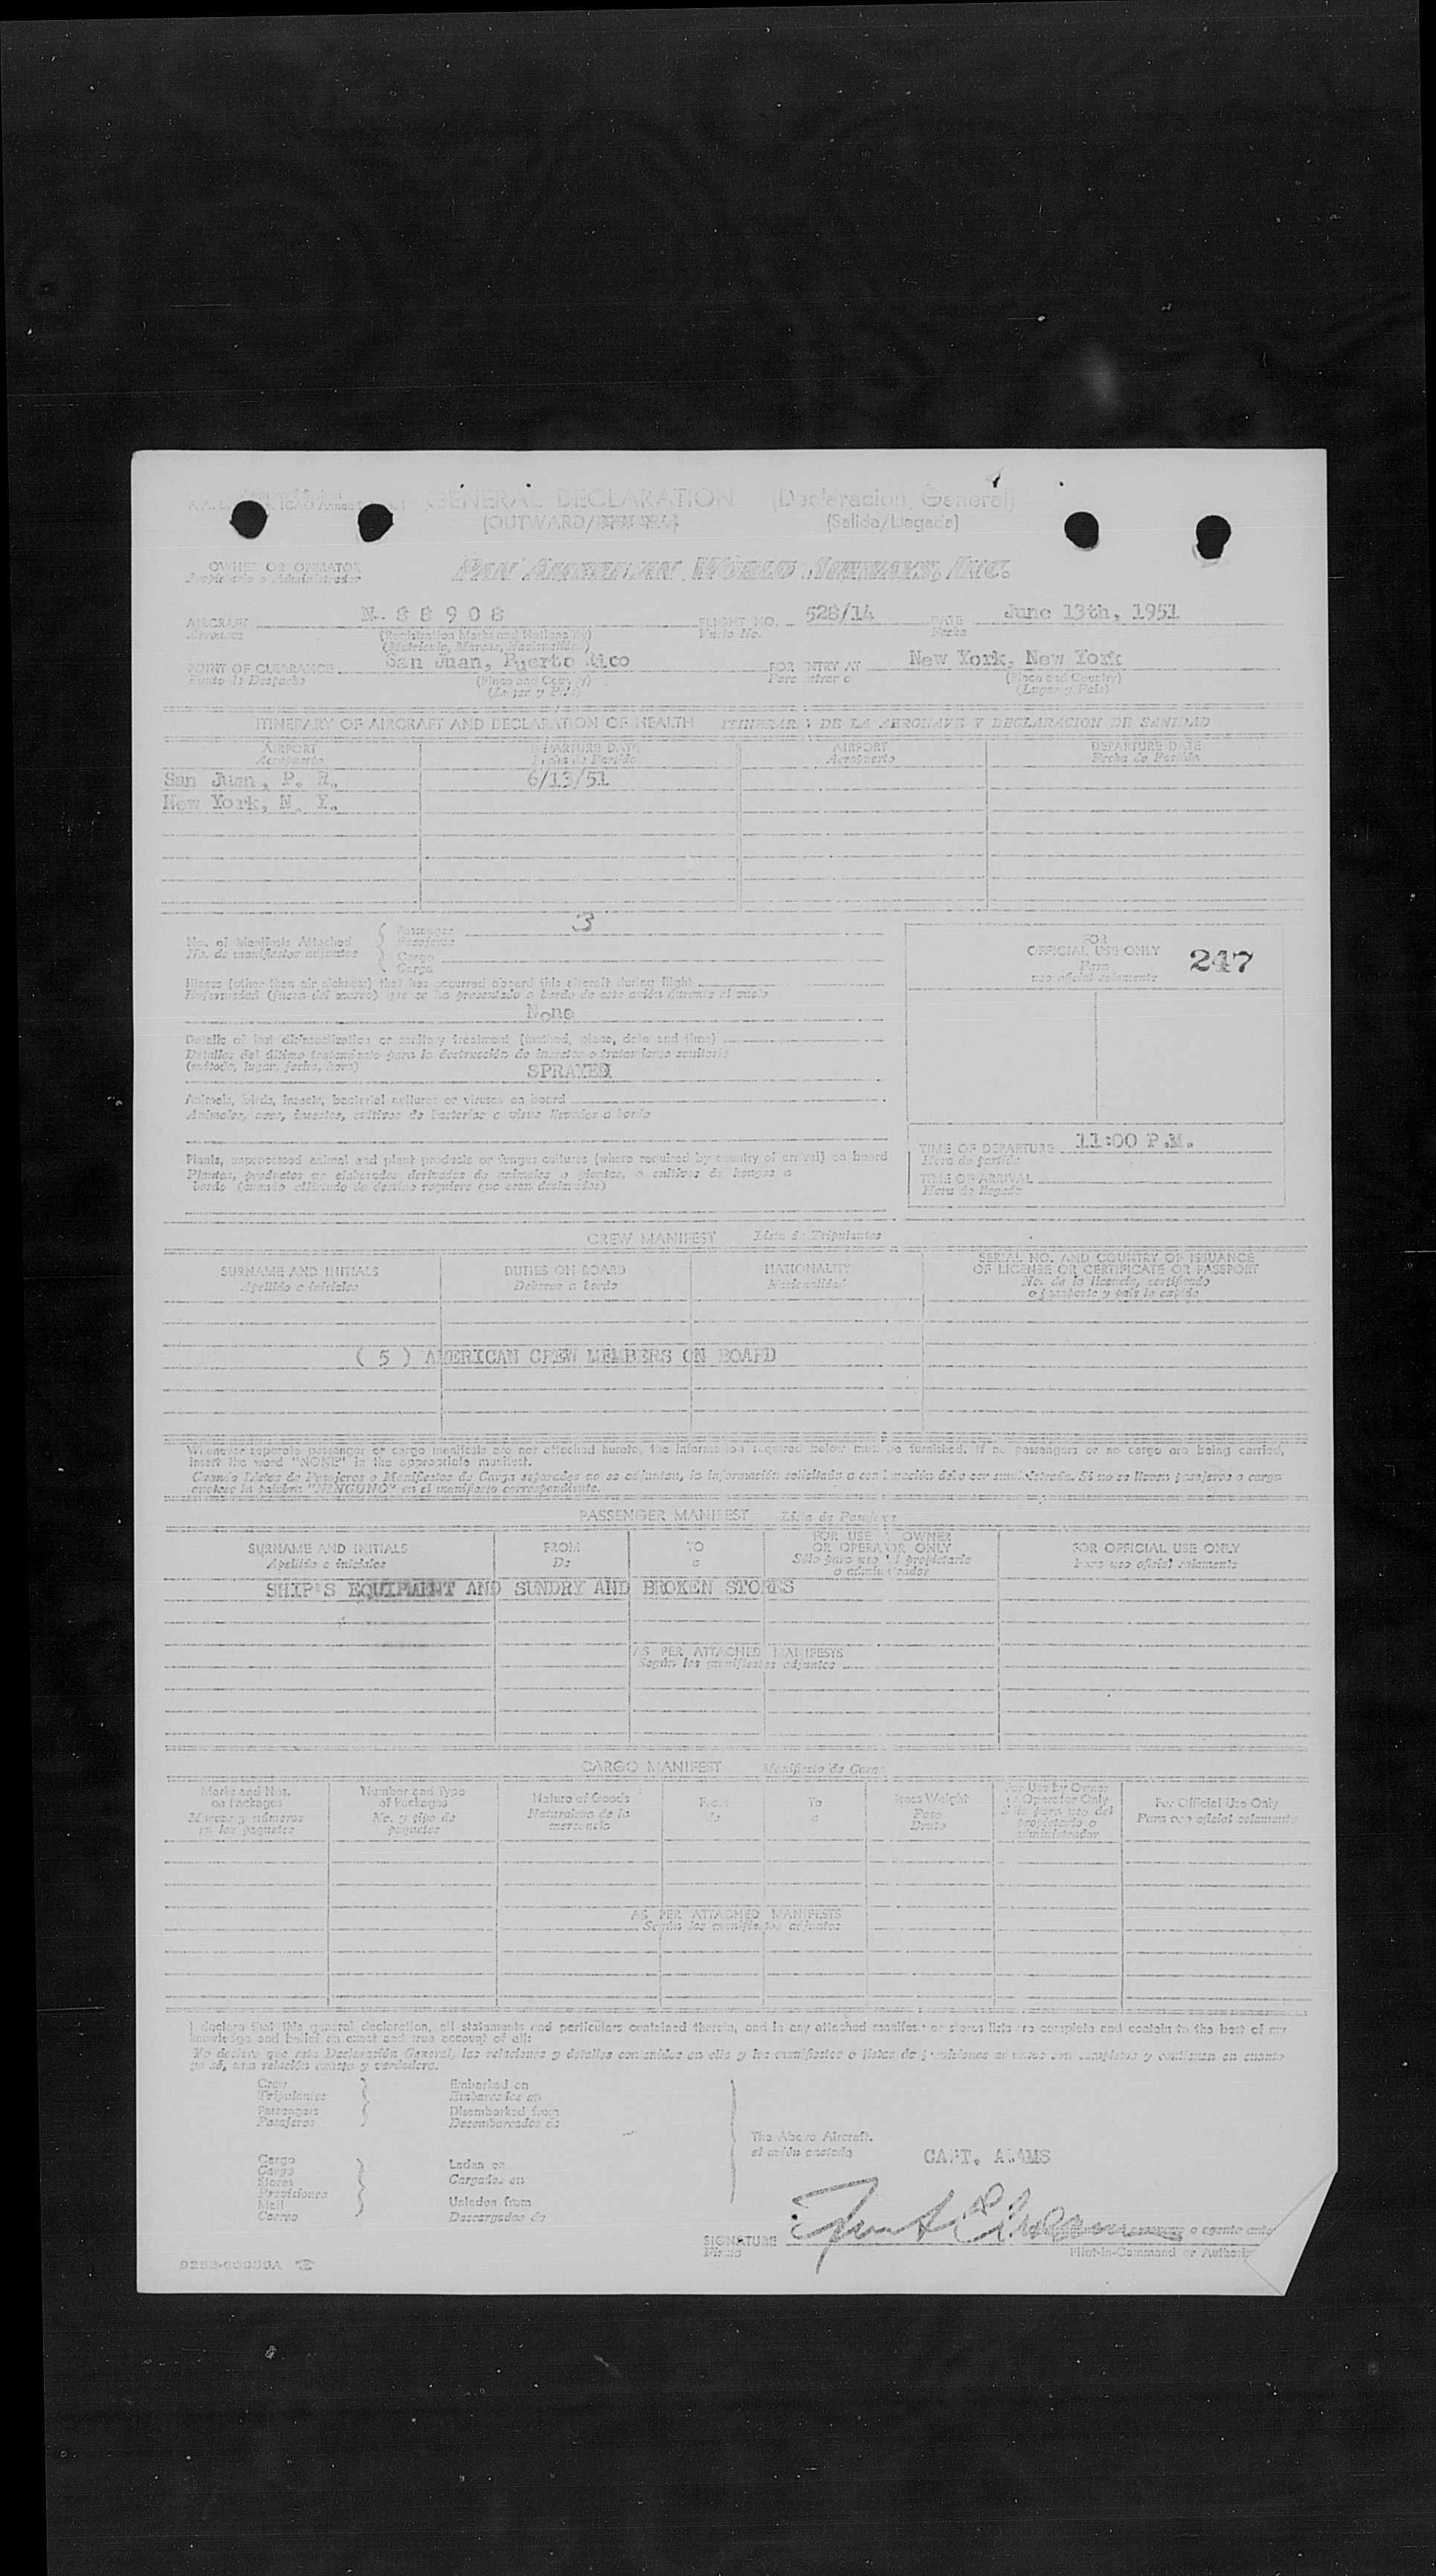 GENERAL DECLARATION (Declaracion General)
(OUTWARD/INWARD) (Salida/Llegada)
OWNER OR OPERATOR PAN AMERICAN WORLD AIRWAYS, INC.
Propietario o Administrador
AIRCRAFT N- 8 8 9 0 8 FLIGHT NO. 528/14 DATE June 13th, 1951
Aeronave (Registration Marks and Nationality) Vuelo No. Fecha
(Matricula, Marcas, Nacionalidad)
POINT OF CLEARANCE San Juan, Puerto Rico FOR ENTRY AT New York, New York
Punto de Despacho (Place and Country) Para entrar a (Place and Country)
(Lugar y País) (Lugar y País)
ITINERARY OF AIRCRAFT AND DECLARATION OF HEALTH ITINERARIO DE LA AERONAVE Y DECLARACION DE SANIDAD
AIRPORT DEPARTURE DATE AIRPORT DEPARTURE DATE
Aeropuerto Fecha de Partida Aeropuerto Fecha de Partida
San Juan, P. R. 6/13/51
New York, N. Y.
Passenger 3
No. of Manifests Attached Pasajeros
No. de manifiestos adjuntos Cargo
Carga
FOR
OFFICIAL USE ONLY 247
Para
uso oficial solamente
Illness (other than air sickness) that has occurred aboard this aircraft during flight
Enfermedad (fuera del mareo) que se ha presentado a bordo de este avión durante el vuelo
None
Details of last disinsectization or sanitary treatment (method, place, date and time)
Detalles del último tratamiento para la destrucción de insectos o tratamiento sanitario
(método, lugar, fecha, hora) SPRAYED
Animals, birds, insects, bacterial cultures or viruses on board
Animales, aves, insectos, cultivos de bacterias o virus llevados a bordo
Plants, unprocessed animal and plant products or fungus cultures (where required by country of arrival) on board
Plantas, productos no elaborados derivados de animales o plantas, o cultivos de hongos a
bordo (cuando el Estado de destino requiere que sean declarados)
TIME OF DEPARTURE 11:00 P.M.
Hora de partida
TIME OF ARRIVAL
Hora de llegada
CREW MANIFEST Lista de Tripulantes
SURNAME AND INITIALS DUTIES ON BOARD NATIONALITY SERIAL NO. AND COUNTRY OF ISSUANCE
OF LICENSE OR CERTIFICATE OR PASSPORT
Apellido e iniciales Deberes a bordo Nacionalidad No. de la licencia, certificado
o pasaporte y país lo expide
( 5 ) AMERICAN CREW MEMBERS ON BOARD
Whenever separate passenger or cargo manifests are not attached hereto, the information required below must be furnished. If no passengers or no cargo are being carried,
insert the word "NONE" in the appropriate manifest.
Cuando Listas de Pasajeros o Manifiestos de Carga separados no se adjuntan, la información solicitada a continuación debe ser suministrada. Si no se llevan pasajeros o carga
anótese la palabra "NINGUNO" en el manifiesto correspondiente.
PASSENGER MANIFEST Lista de Pasajeros
SURNAME AND INITIALS FROM TO FOR USE BY OWNER
OR OPERATOR ONLY FOR OFFICIAL USE ONLY
Apellido e iniciales De a Sólo para uso del propietario
o administrador Para uso oficial solamente
SHIP'S EQUIPMENT AND SUNDRY AND BROKEN STORES
AS PER ATTACHED MANIFESTS
Según los manifiestos adjuntos
CARGO MANIFEST Manifiesto de Carga
Marks and Nos.
on Packages
Marcas y números
en los paquetes
Number and Type
of Packages
No. y tipo de
paquetes
Nature of Goods
Naturaleza de la
mercancía
From
de
To
a
Gross Weight
Peso
Bruto
For Use by Owner
or Operator Only
Sólo para uso del
propietario o
administrador
For Official Use Only
Para uso oficial solamente
AS PER ATTACHED MANIFESTS
Según los manifiestos adjuntos
I declare that this general declaration, all statements and particulars contained therein, and in any attached manifests or stores lists are complete and contain to the best of my
knowledge and belief an exact and true account of all:
Yo declaro que esta Declaración General, las relaciones y detalles contenidos en ella y los manifiestos o listas de provisiones adjuntos son completos y contienen en cuanto
yo sé, una relación exacta y verdadera.
Crew
Tripulantes
Passengers
Pasajeros
Embarked on
Embarcados en
Disembarked from
Desembarcados de
Cargo
Carga
Stores
Provisiones
Mail
Correo
Laden on
Cargados en
Unladen from
Descargados de
The Above Aircraft.
el avión anotado
CAPT. ADAMS
SIGNATURE
Firma
o agente
Pilot-in-Command or